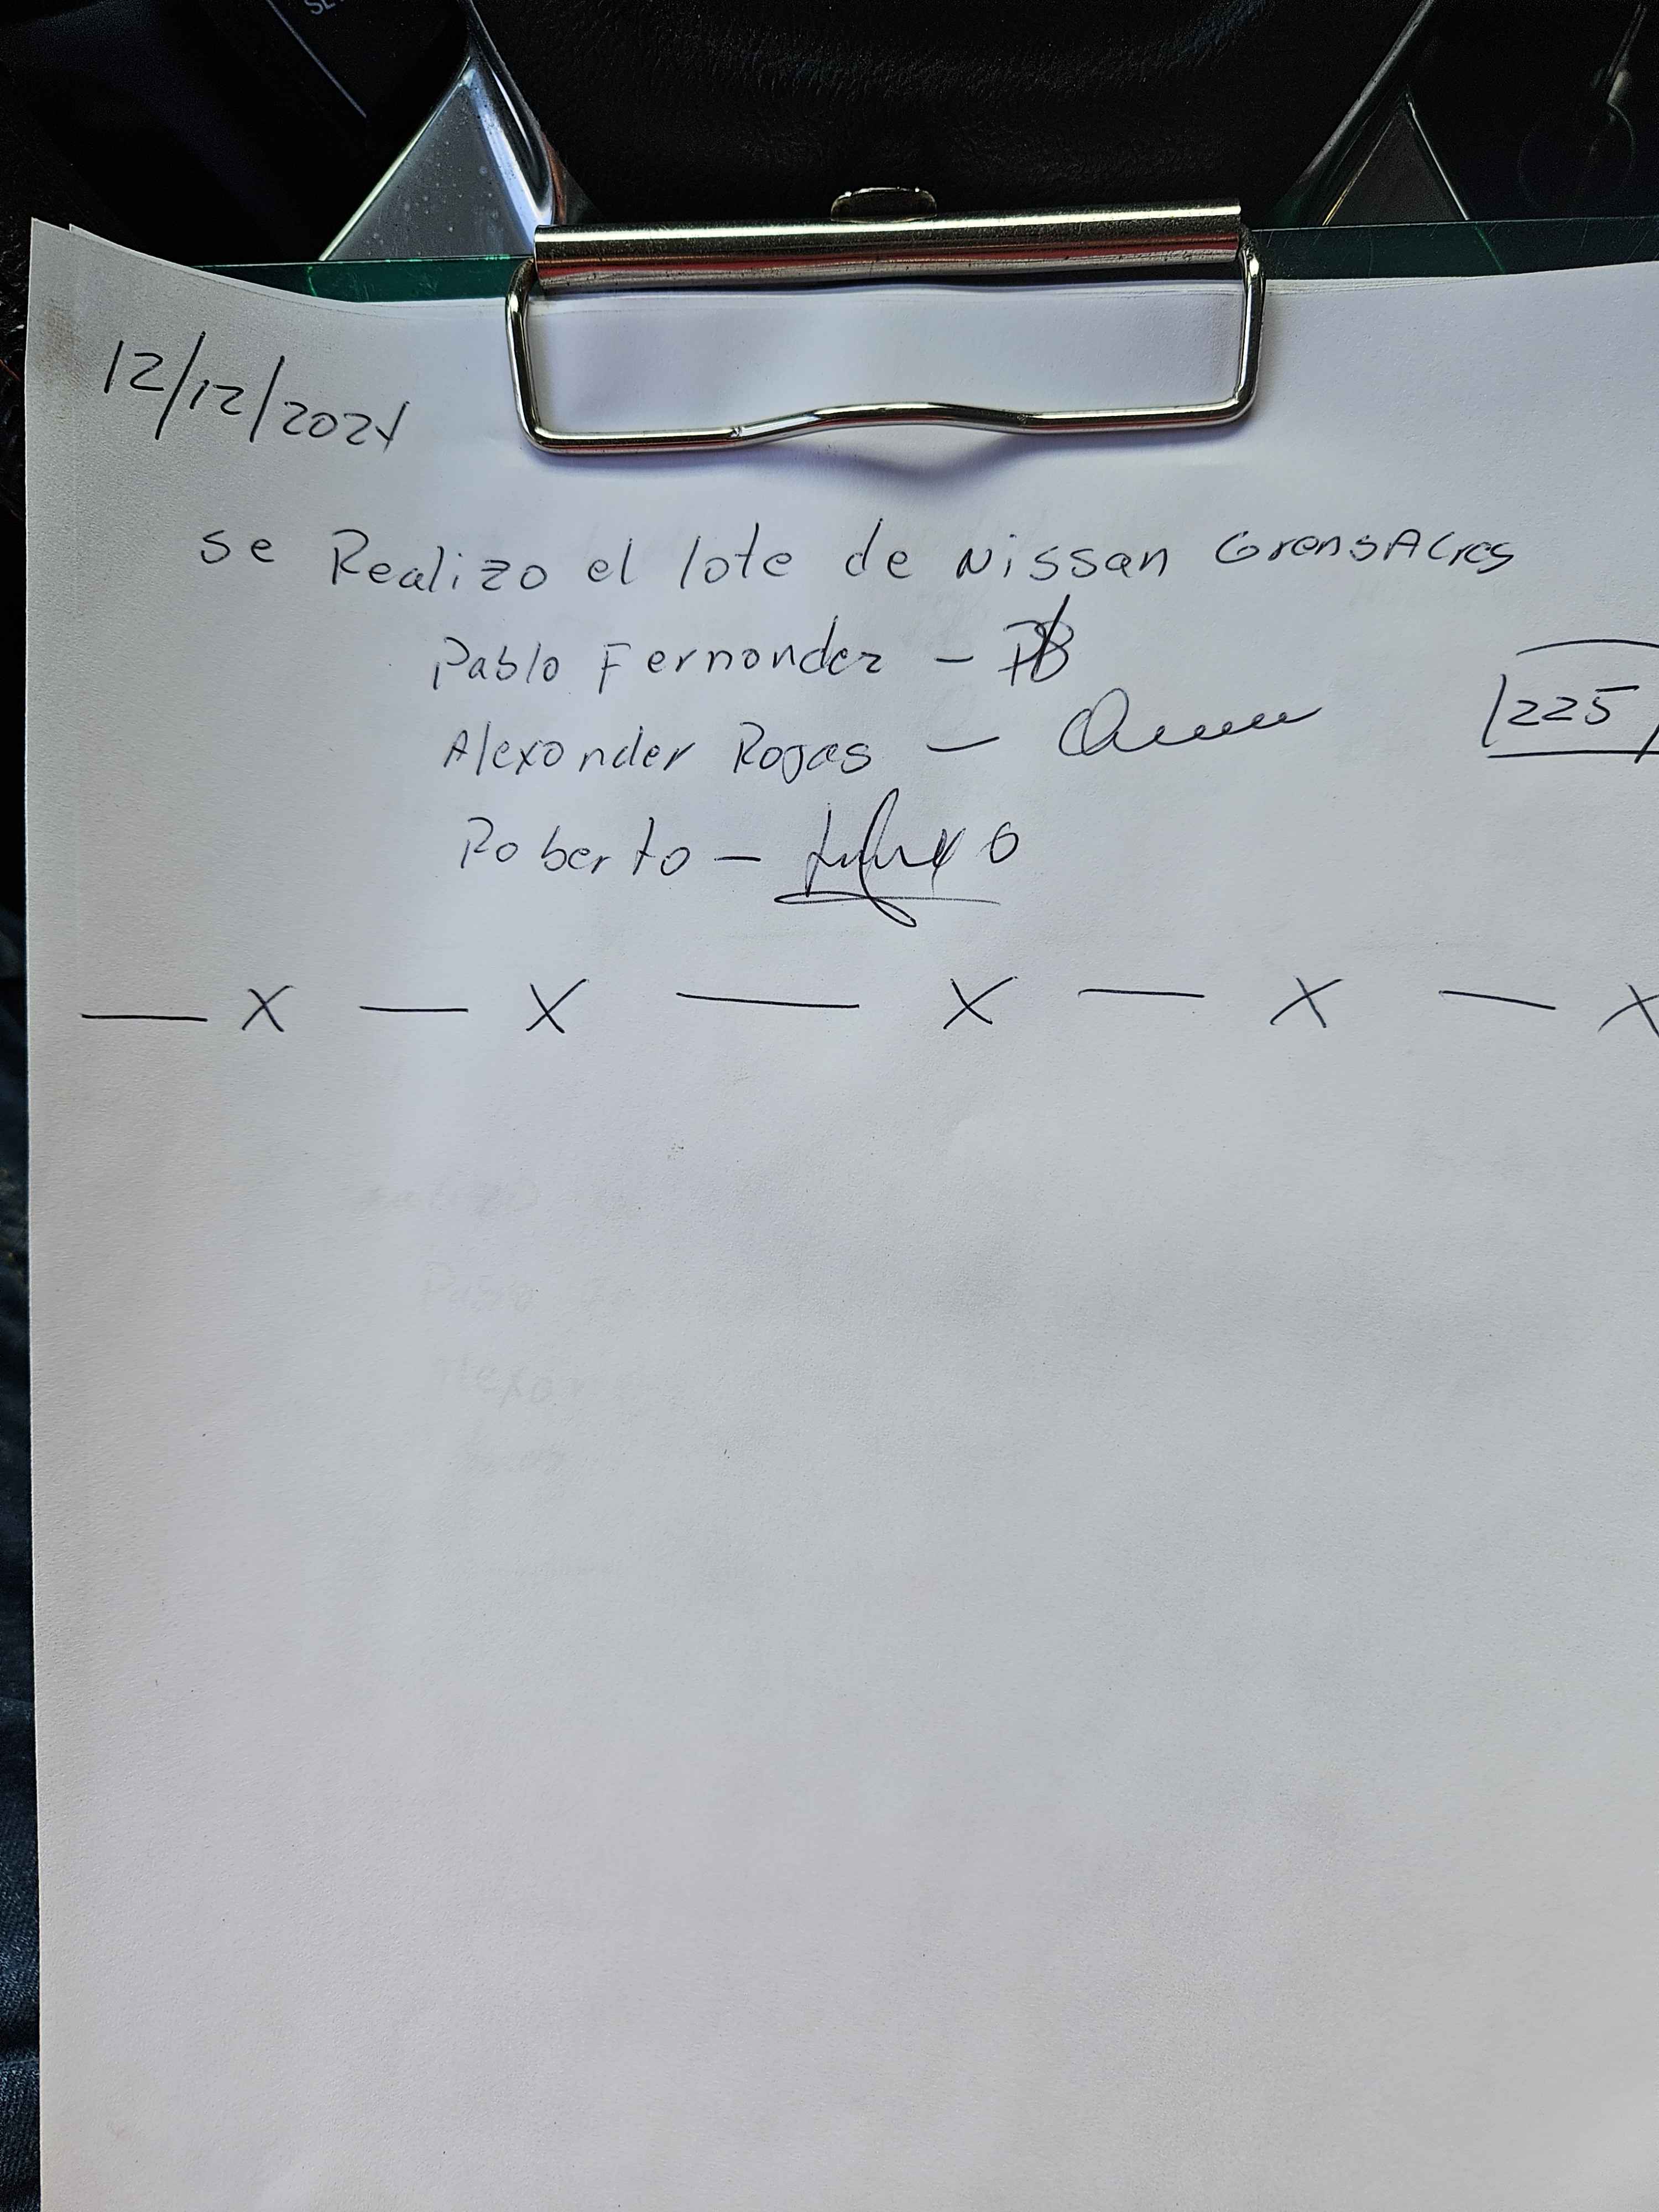 12/12/2024
se Realizo el lote de Nissan GrensAcres
Pablo Fernandez –
Alexander Rojas –
225
Roberto –
— X — X — X — X — X